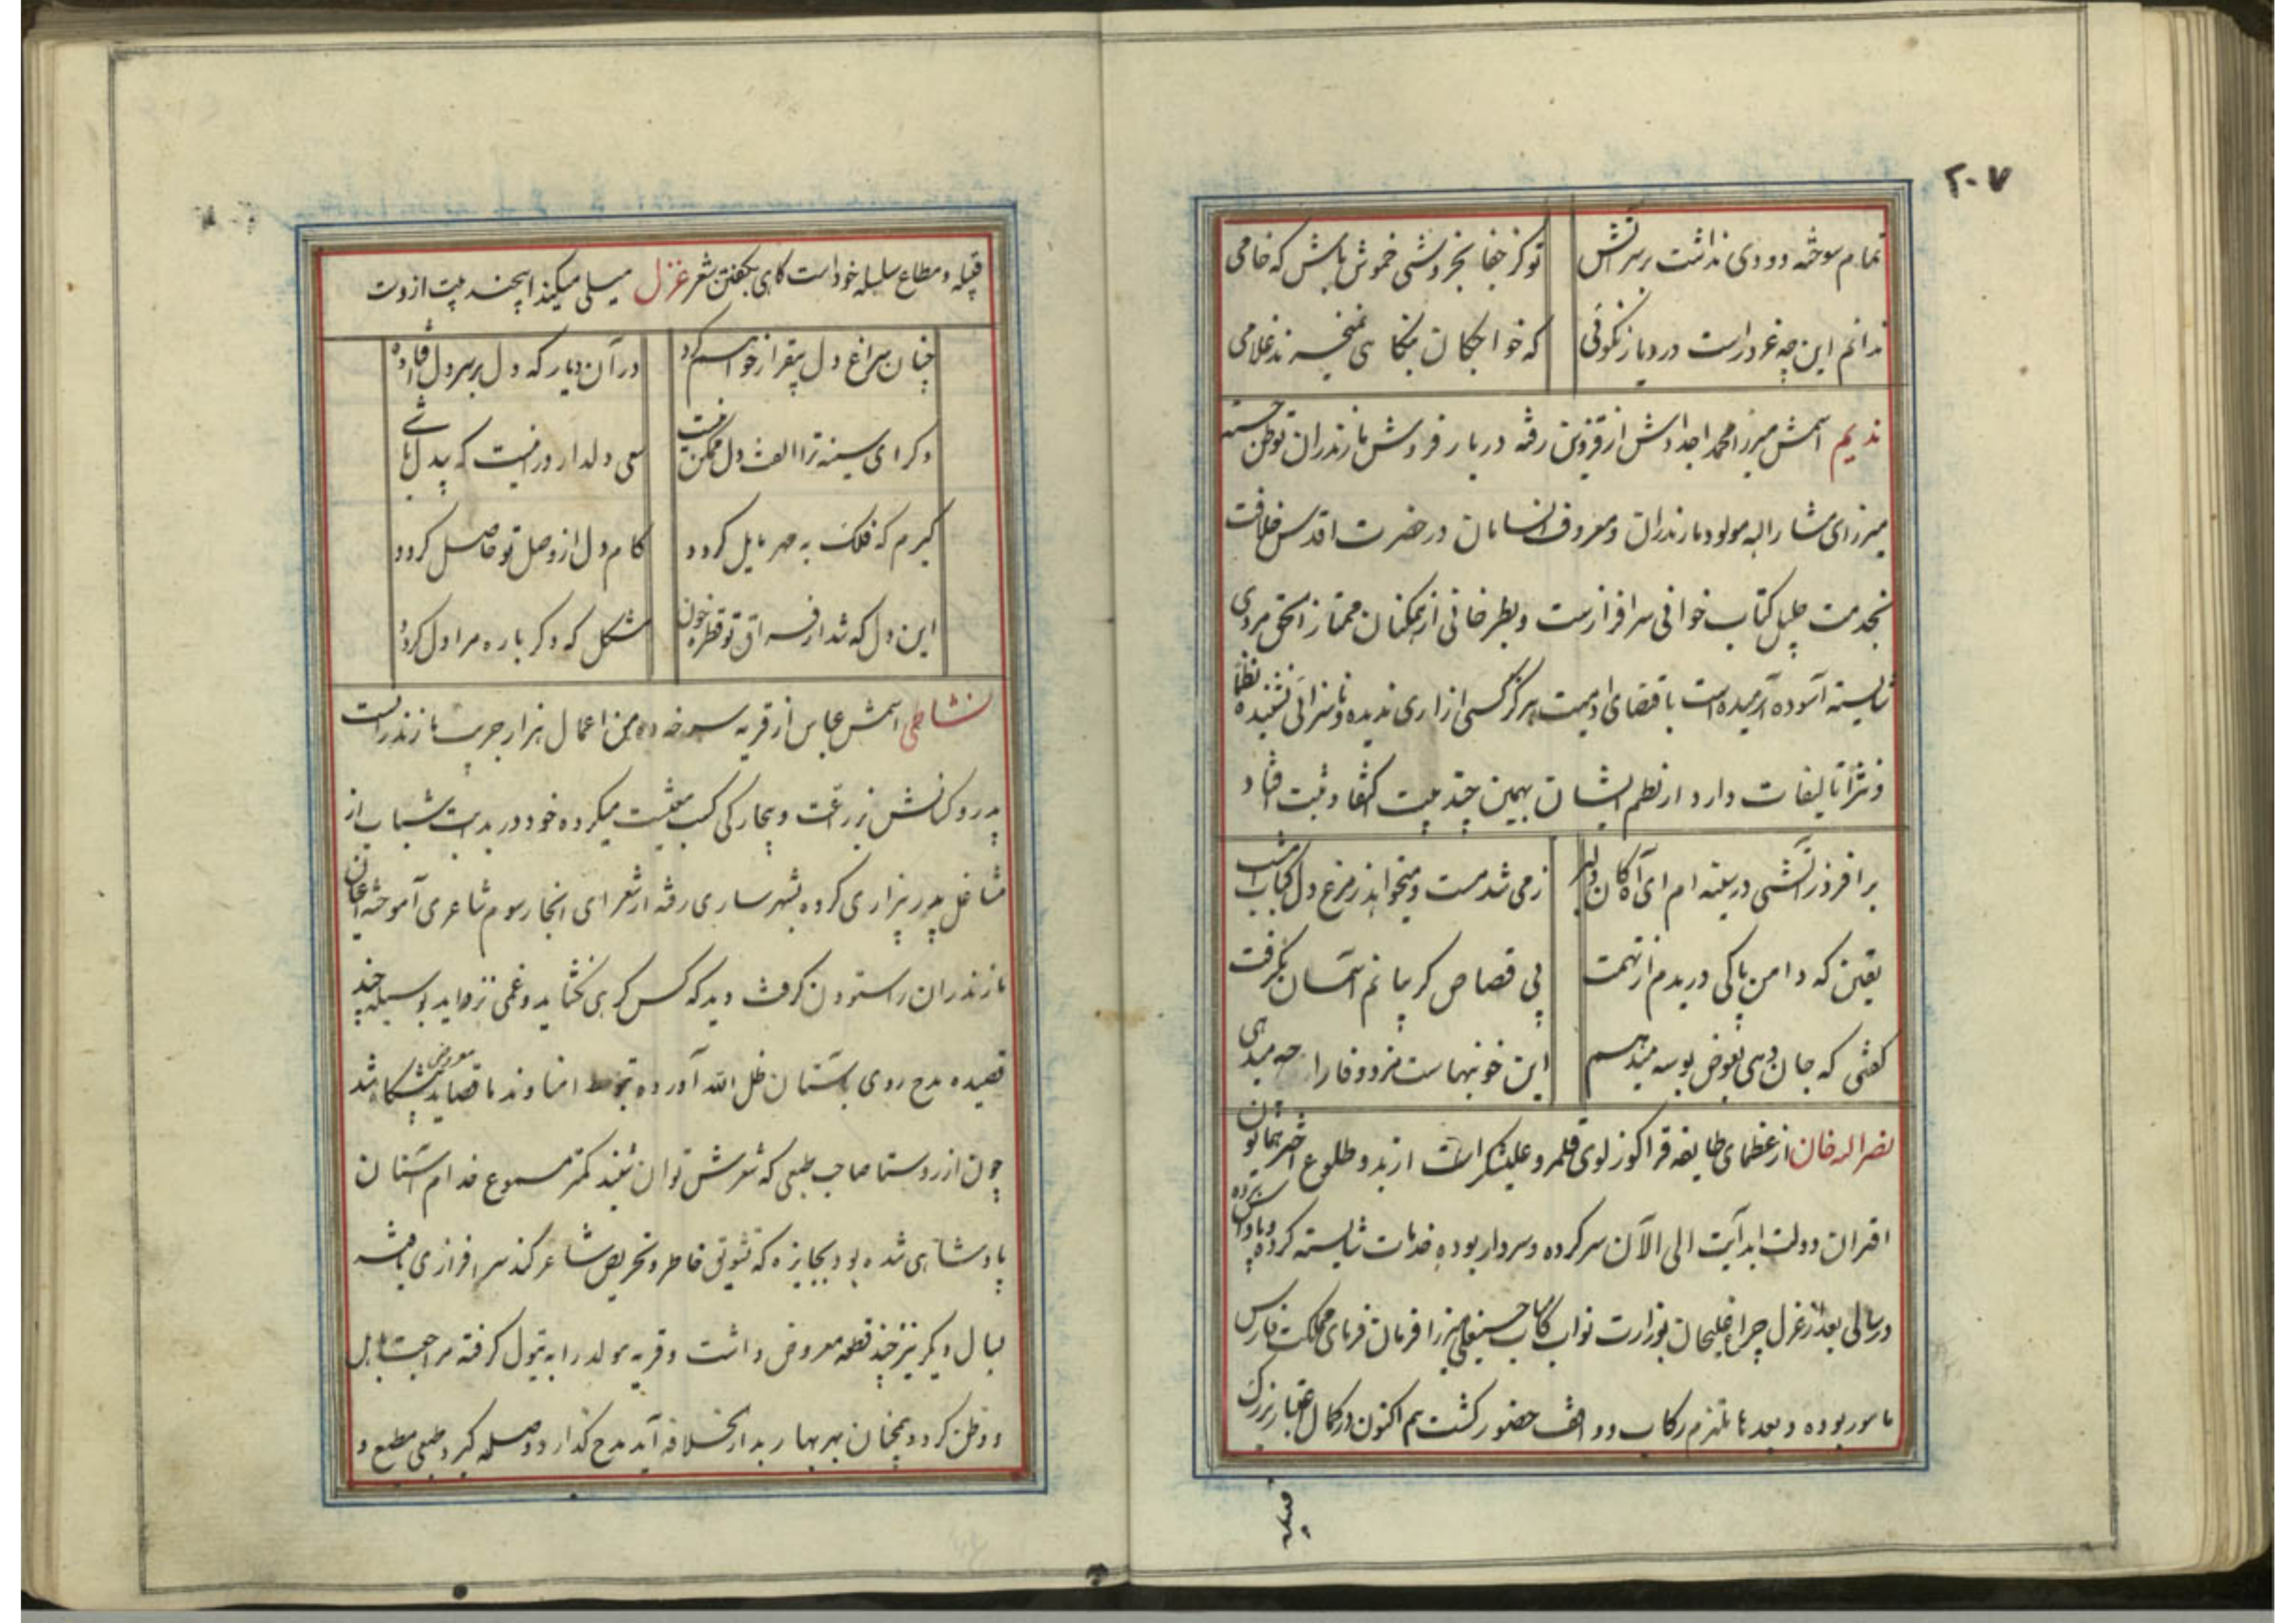 ۲۰۷
تمام سوخته دودی نداشت بر سر آتش تو کز جفا بخروشی خموش باش که خامی
ندانم این چه غرور است در دیار نکوئی که خواجگان بنگاهی نمیخرند غلامی
ندیم اسمش میرزا محمد اجدادش از قزوین رفته در بارفروش مازندران توطن جسته
میرزای مشارالیه مولود مازندران و معروف در حضرت اقدس خلافت
بخدمت جلیل کتاب خوانی سرافرازست و از همکنان ممتاز الحق مردی
شایسته آسوده آرمیده است باقتضای آدمیت هرگز کسی ازاری ندیده و ناسزائی نشنیده نظما
و نثرا تالیفات دارد از نظم ایشان بهمین چند بیت اکتفا و ثبت افتاد
برافروز آتشی در سینه ام ای آه کان دلبر ز می شد مست و میخواهد ز مرغ دل کباب امشب
یقین که دامن پاکی دریدم از تهمت پی قصاص گریبانم آسمان بگرفت
گفتی که جان دهی بعوض بوسه میدهم این خونبهاست مزد وفا را چه میدهی
نصراله خان از عظمای طایفه قراگوزلوی قلمرو علیشکر است از بدو طلوع اختر همایون
اقتران دولت ابدآیت الی الآن سرکرده و سردار بوده خدمات شایسته کرده و پاداش برده
و سالی بعد از عزل چراغعلیخان بوزارت نواب کامیاب حسینعلی میرزا فرمان فرمای مملکت فارس
مامور بوده و بعدها ملتزم رکاب و واقف حضور گشت هم اکنون در کمال اعتبار بزرگ
قبیله
قبیله و مطاع سلسله خود است گاهی بگفتن شعر غزل میلی میکند اینچند بیت ازوست
چنان سراغ دل بیقرار خواهم کرد در آن دیار که دل بر سر دل افتاده
دگر ای سینه ترا الفت دل ممکن نیست سعی دلدار در اینست که بیدل باشی
گیرم که فلک به مهر مایل گردد کام دل از وصل تو حاصل گردد
این دل که شد از فراق تو قطره خون مشکل که دگر باره مرا دل گردد
نشاطی اسمش عباس از قریه سرخه ده من اعمال هزار جریب مازندرانست
پدر و کسانش بزراعت و کسب معیشت میکرده خود در بدایت شباب از
مشاغل پدر بیزاری کرده بشهر ساری رفته از شعرای انجا رسوم شاعری آموخته اعیان
مازندران را ستودن گرفت دید که کس گرهی نگشاید و غمی نزداید بوسیله چند
قصیده مدح روی باستان ظل الله آورده بتوسط امناء وند ما قصاید معروض پیشگاه شد
چون از روستا صاحب طبعی که شعرش توان شنید کمتر مسموع خدام آستان
پادشاهی شده بود بجایزه که تشویق خاطر و تحریص شاعر کند سرافرازی یافته
سال دیگر نیز چند قطعه معروض داشت و قریه مولد را به تیول گرفته مراجعت باهل
و وطن کرد و همچنان بهر بهار بدار الخلافه آید مدح گذارد و صله گیرد طبعی مطبع و